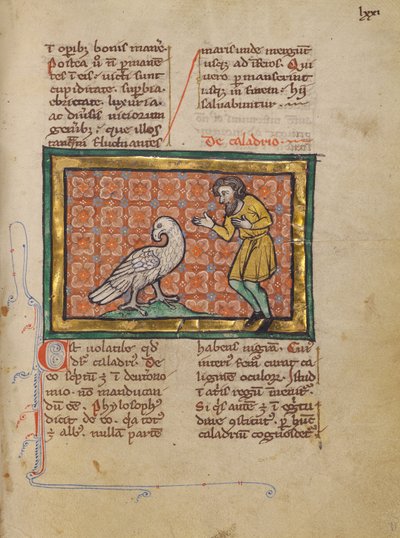 lxxi
t opibȝ bonis manēt
Postea ū n̄ p̄manen
tes i eis · victi sunt
cupiditate · supbia
ebrietate luxuria ·
ac diūsis viciorum
genībȝ · que illos
tanꝙ̄ fluctuantes
maris unde mergunt
usqȝ ad inferos. Qui
uero p̄manserint
usqȝ in finem · hij
saluabuntur ·
De caladrio ·
Est volatile qd̄
dr̄ caladriꝰ. De
eo sc̄ptū ē i deutoro
mio · nō manducan
dū eē · Phylosophꝰ
dicit de eo · qa totꝰ
ē albꝰ · nullā partē
habens nigrā · Cuiꝰ
interiꝰ curat ca
liginem oculoꝝ · Istud
i atriis regum īuenit̄ ·
Si qis autē ē i
dine ꝯstitutꝰ · p hūc
caladriū cognoscit̄